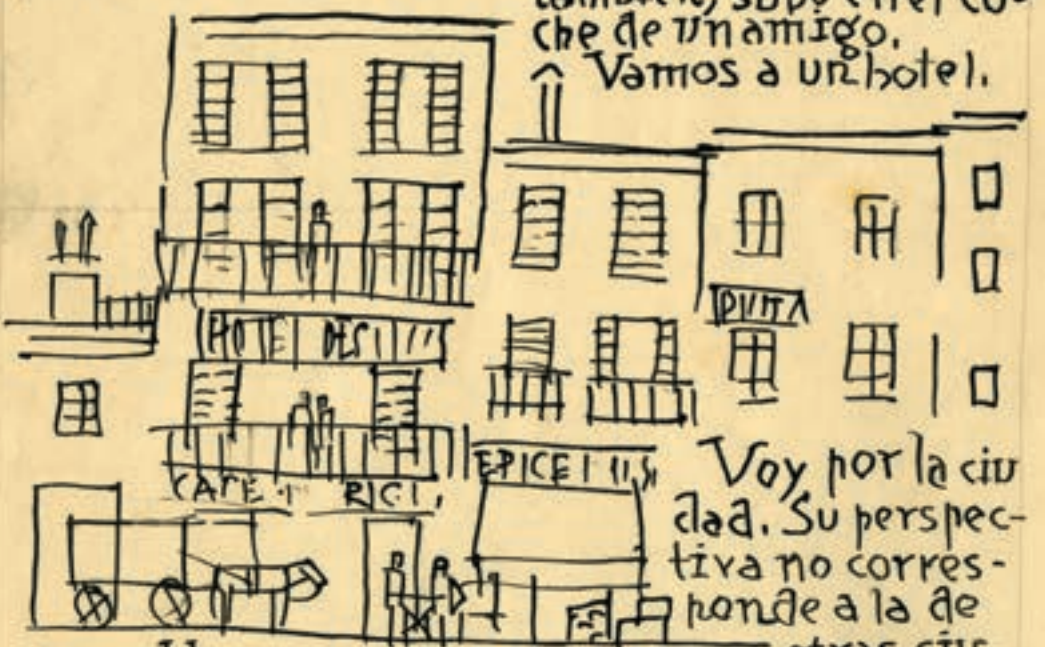 che de un amigo.
Vamos a un hotel.
HOTEL DES
CAFE
EPICE
Voy por la ciu
dad. Su perspec-
tiva no corres-
ponde a la de
otras ciu